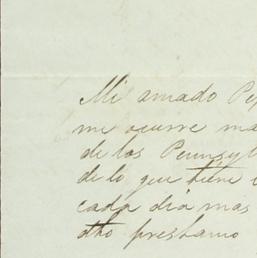 Mi amado Pep
me ocurre ma
de los Pennsyl
de lo que tiene
cada dia mas
dho prestamo